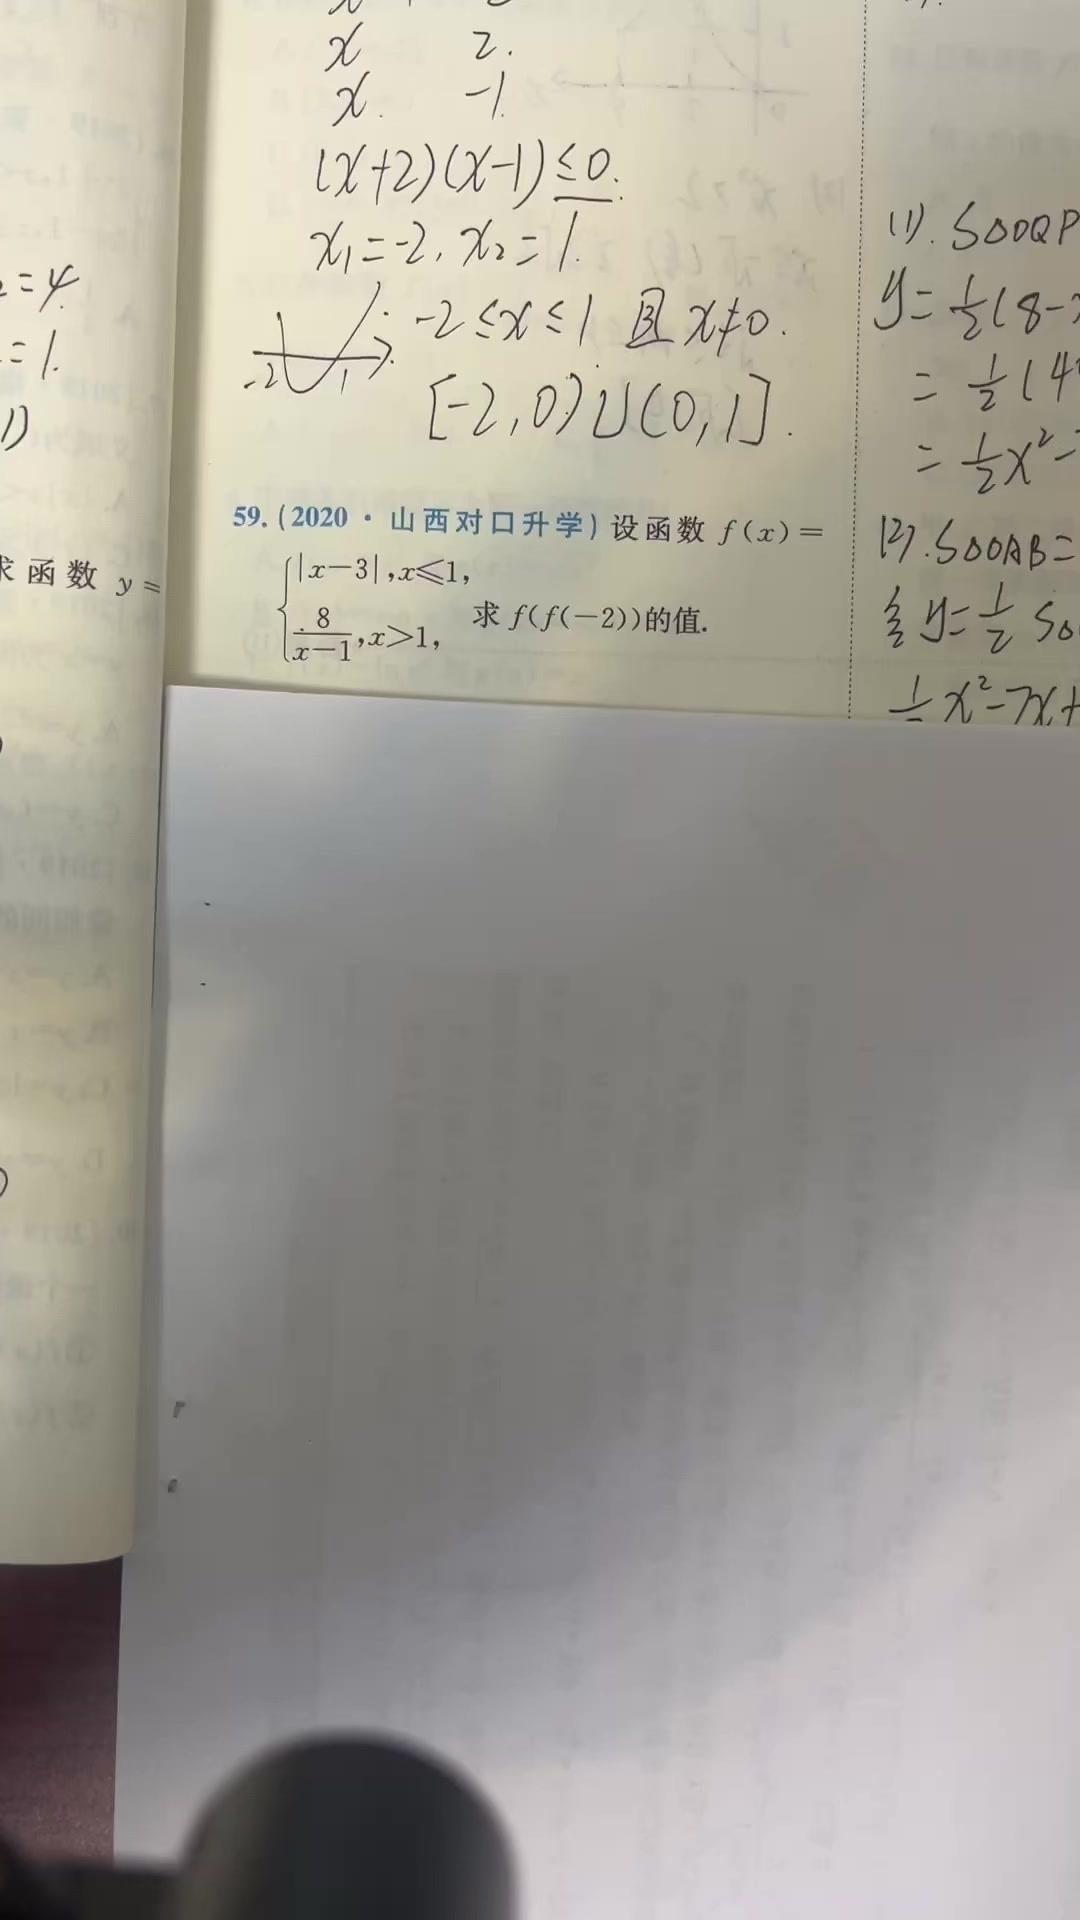 x 2.
x. -1.
(x+2)(x-1)≤0.
x₁=-2, x₂=1.
-2≤x≤1 且 x≠0.
-2 1
[-2,0)∪(0,1].
59. (2020·山西对口升学) 设函数 f(x)=
{|x-3|, x≤1,
8/(x-1), x>1, 求 f(f(-2))的值.
=4.
=1.
1)
求函数 y=
(1). S△OQP
y=½(8-x
=½(4
=½x²-7
(2). S△OAB=
当 y=½ S△
x²-7x+